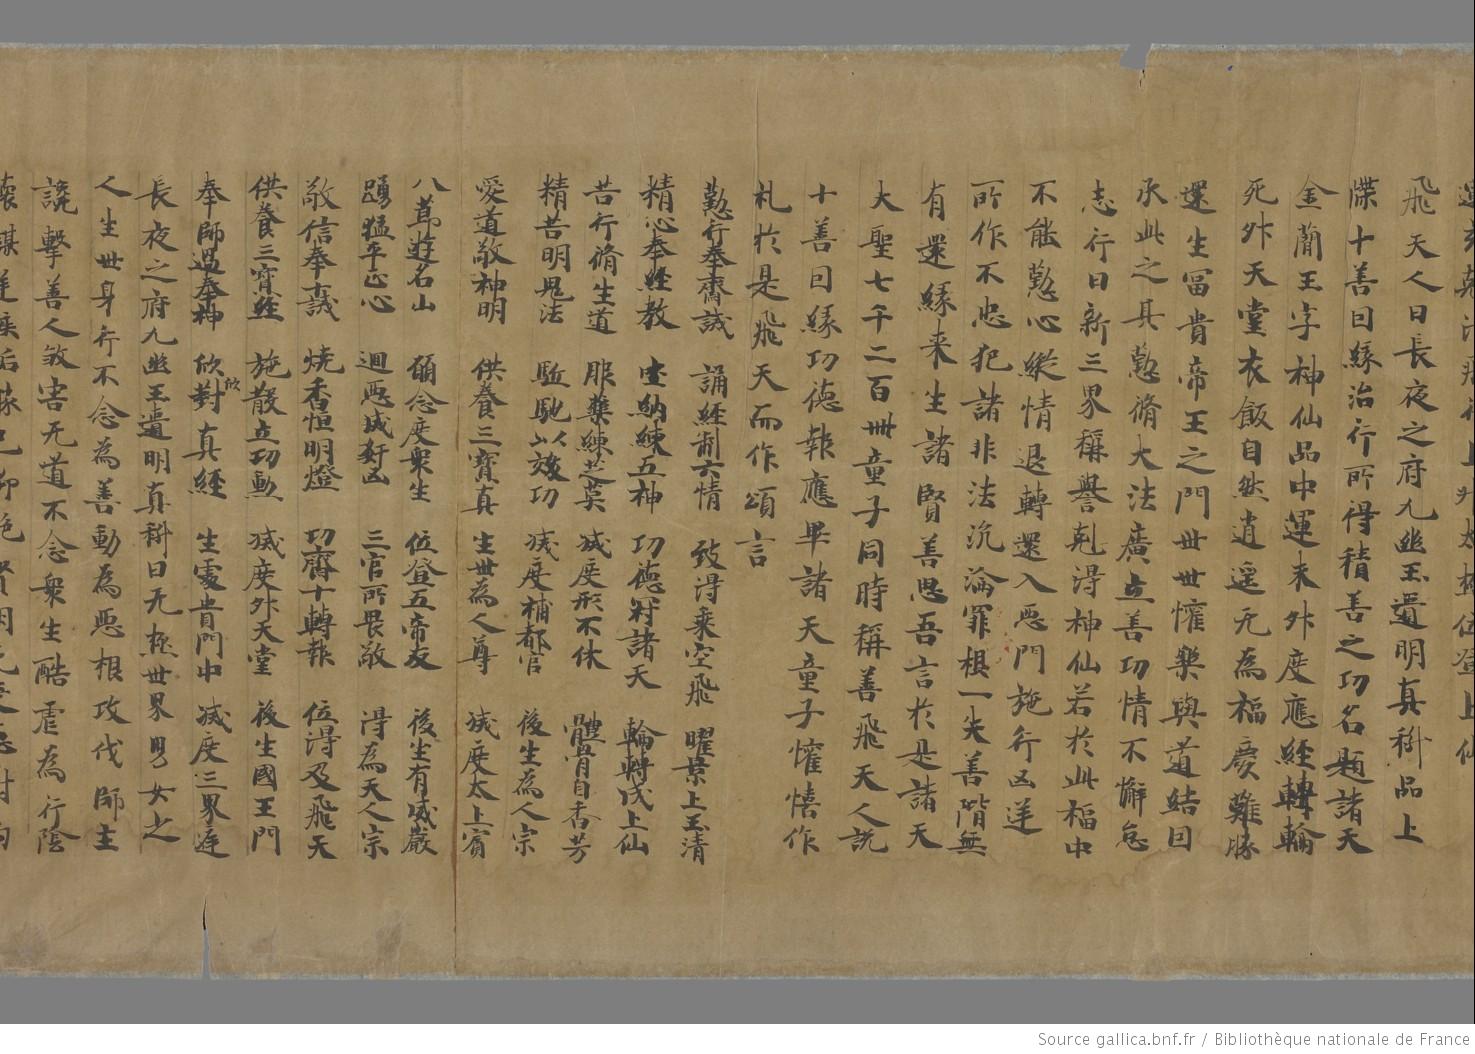 飛天人曰長夜之府九幽玉遺明真科品上
牒十善因緣治行所得積善之功名題諸天
金蕑玉字神仙品中運来升度應經轉輪
死升天堂衣飯自然逍遥无為福慶難勝
還生冨貴帝王之門世世懽樂與道結因
承此之其懃脩大法廣立善功情不懈怠
志行日新三界稱譽剋淂神仙若於此福中
不能懃心縱情退轉還入惡門施行凶逆
所作不忠犯諸非法沉淪罪根一失善階無
有還緣来生諸賢善思吾言於是諸天
大聖七千二百卌童子同時稱善飛天人說
十善因緣功德報應畢諸天童子懽憘作
礼於是飛天而作頌言
懃行奉齋誡 誦經制六情 致淂乘空飛 曜景上玉清
精心奉經教 吐納練五神 功德冠諸天 輪轉成上仙
苦行脩生道 服藥練芝英 滅度形不休 體骨自香芳
精苦明鬼法 駈馳以效功 滅度補都官 後生為人宗
愛道敬神明 供養三寶真 生世為人尊 滅度太上賓
八節遊名山 願念度衆生 位登五帝友 後生有威嚴
踴猛平正心 迴惡滅姧凶 三官所畏敬 淂為天人宗
敬信奉十誡 燒香恒明燈 功齊十轉報 位淂及飛天
供養三寶經 施散立功勲 滅度升天堂 後生國王門
奉師過奉神 欣欣對真經 生處貴門中 滅度三界庭
長夜之府九幽玉遺明真科曰无極世界男女之
人生世身行不念為善動為惡根攻伐師主
讒擊善人敚害无道不念衆生酷虐為行陰